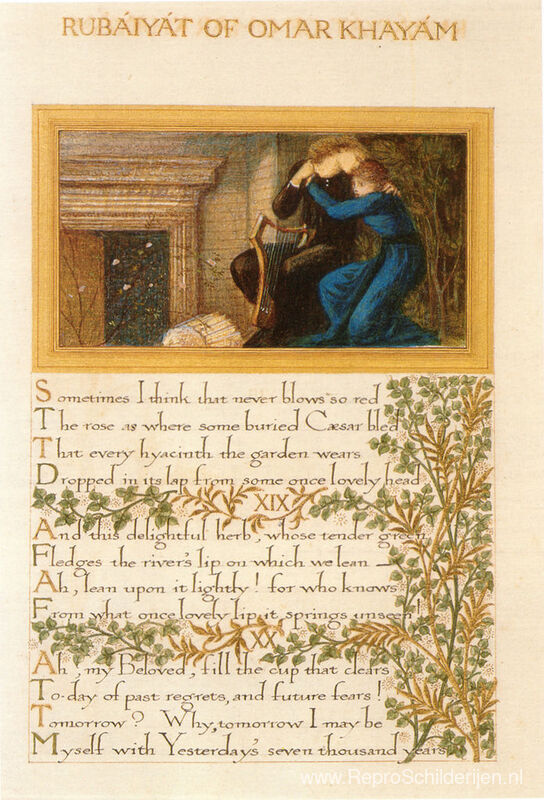 RUBÁIYÁT OF OMAR KHAYÁM
Sometimes I think that never blows so red
The rose as where some buried Cæsar bled
That every hyacinth the garden wears
Dropped in its lap from some once lovely head
XIX
And this delightful herb, whose tender green
Fledges the river's lip on which we lean —
Ah, lean upon it lightly! for who knows
From what once lovely lip it springs unseen!
XX
Ah, my Beloved, fill the cup that clears
To-day of past regrets, and future fears!
Tomorrow? Why, tomorrow I may be
Myself with Yesterday's seven thousand years
www.ReproSchilderijen.nl